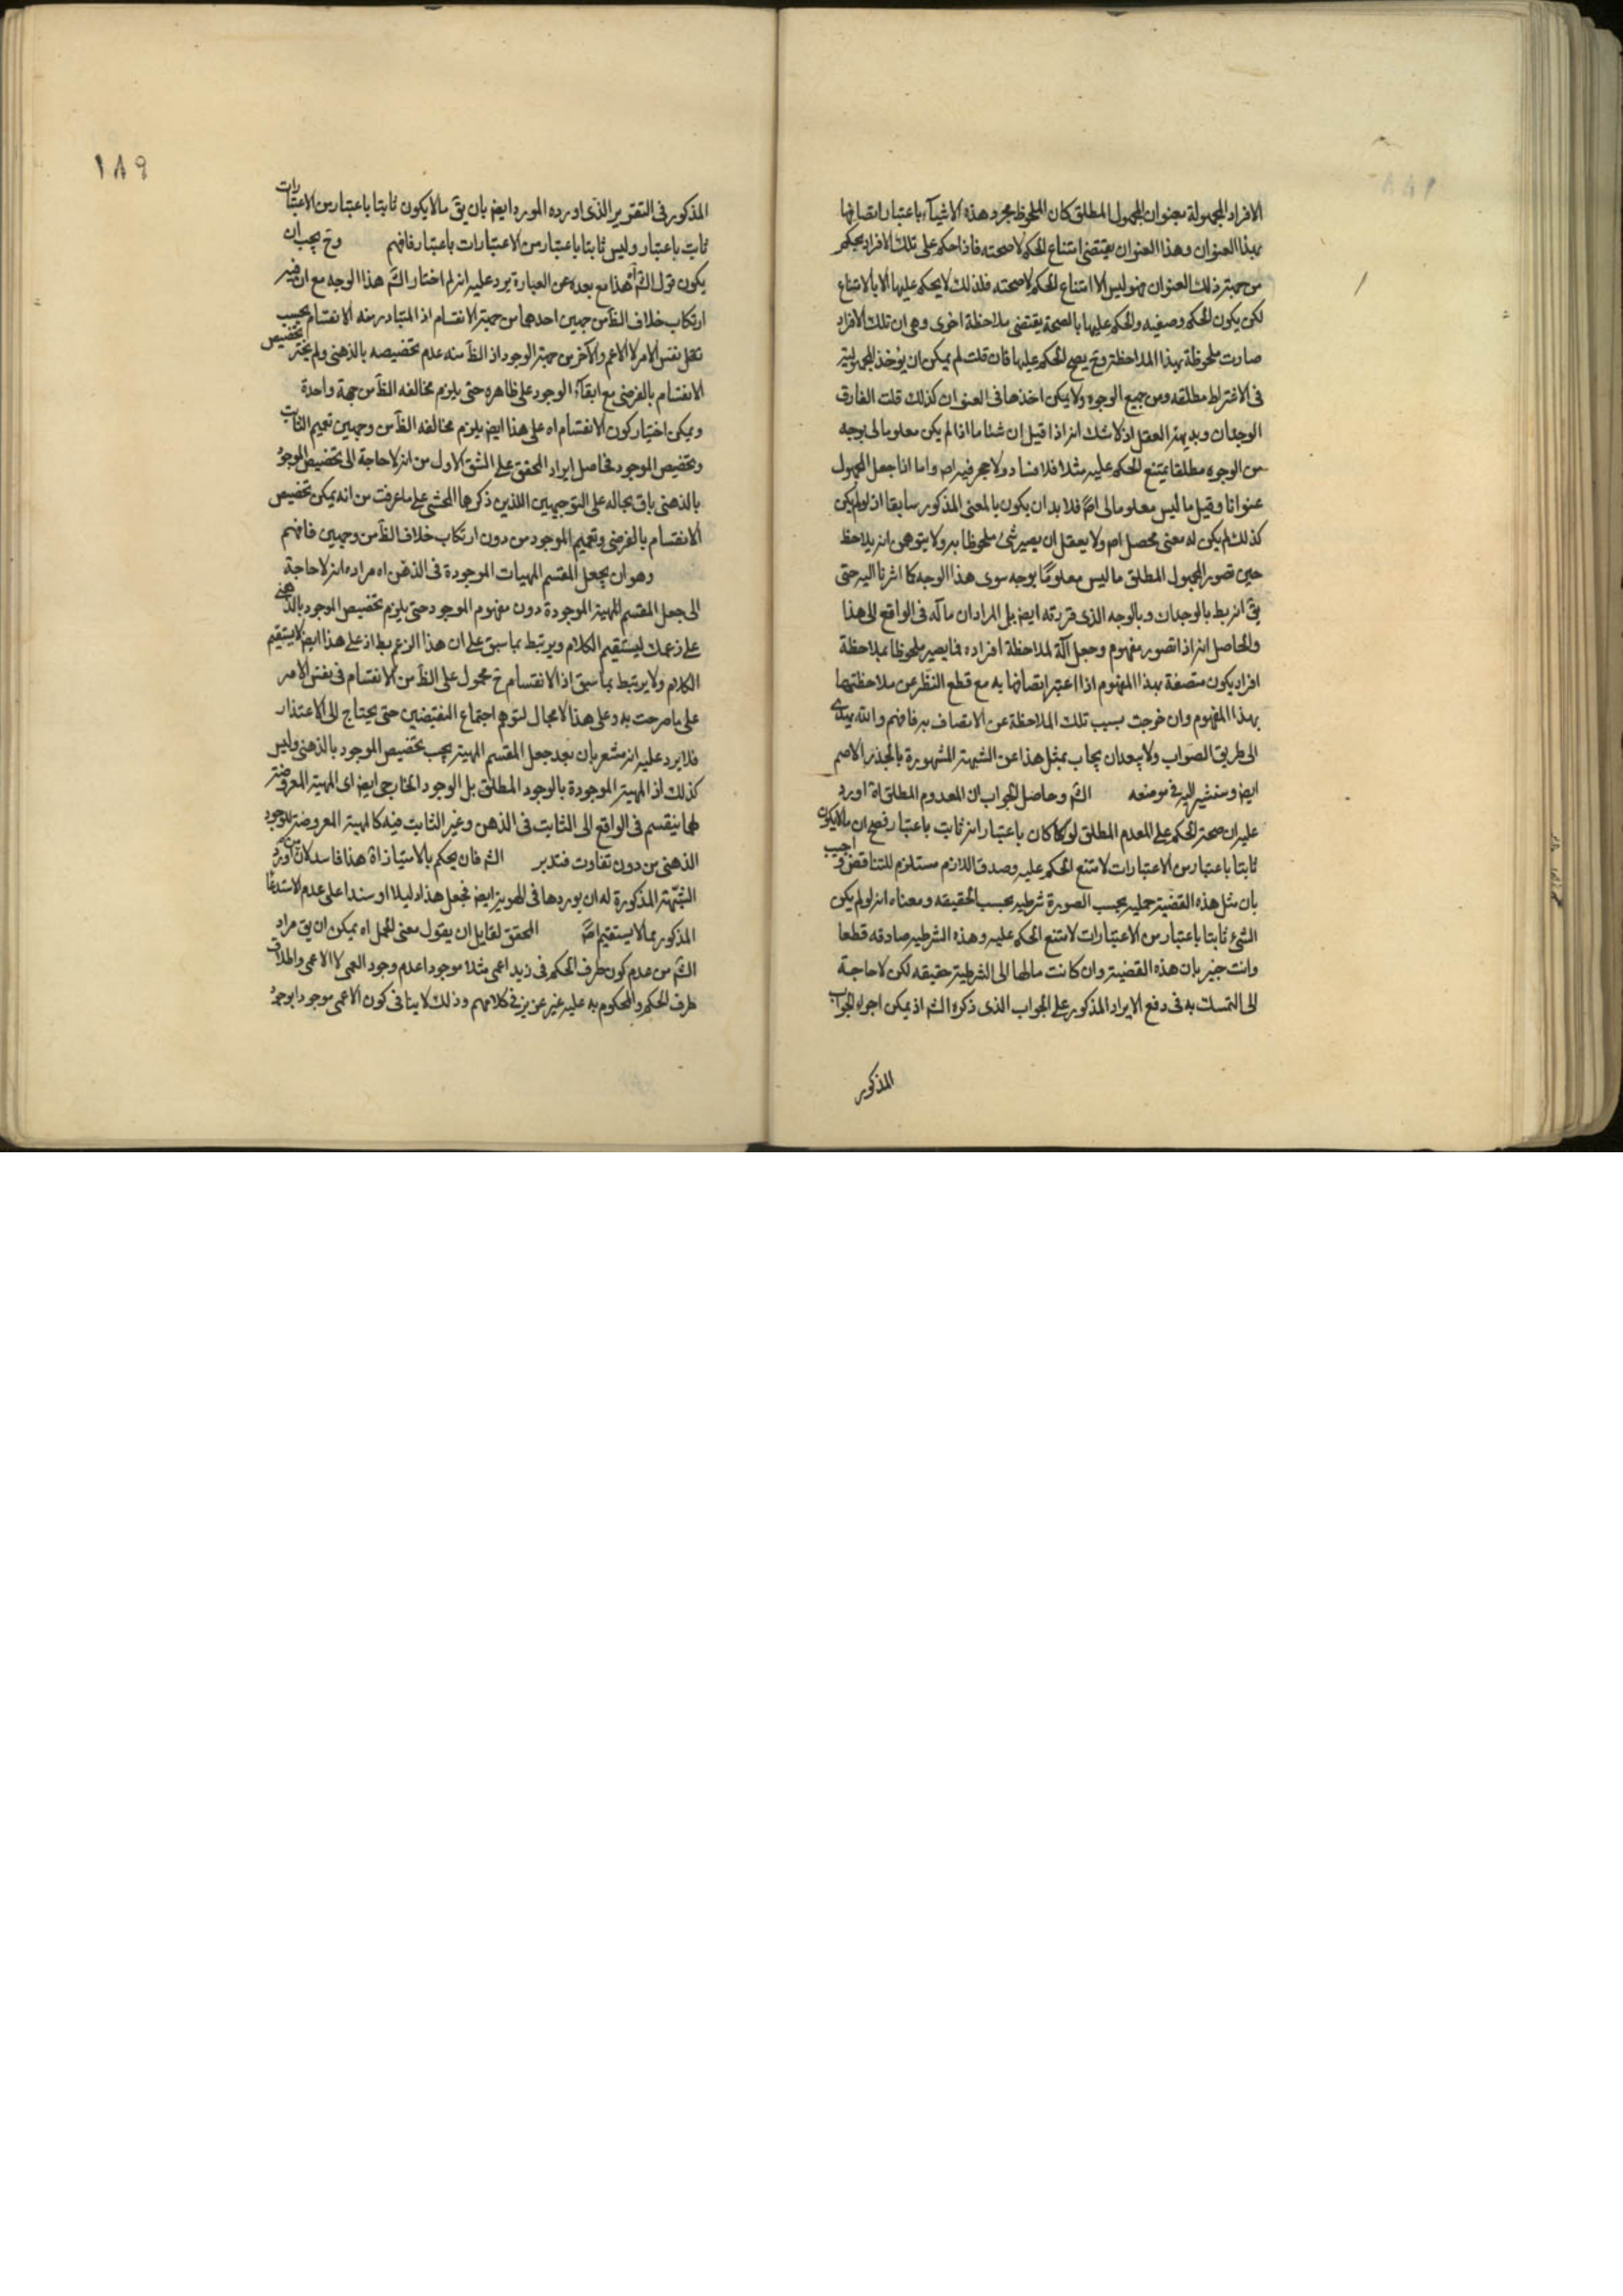 الافراد المجهولة بعنوان المجهول المطلق كان الملحوظ مجرد هذه الاشيآء باعتبار اتصافها
بهذا العنوان وهذا العنوان يقتضى امتناع الحكم لا صحته فاذا حكم على تلك الافراد يحكم
من حيث ذلك العنوان فهو ليس الا امتناع الحكم لا صحته فلذلك لا يحكم عليها الا بالامتناع
لكن يكون الحكم وصفيه والحكم عليها بالصحة يقتضى ملاحظة اخرى وهى ان تلك الافراد
صارت ملحوظة بهذا الملاحظة وح يصح الحكم عليها فان قلت لم يمكن ان يؤخذ المجهولية
فى الاغتراط مطلقه ومن جميع الوجوه ولا يمكن اخذها فى العنوان كذلك قلت الفارق
الوجدان وبديهة العقل اذ لا شك انه اذا قيل ان شئا ما اذا لم يكن معلوما لى بوجه
من الوجوه مطلقا يمتنع الحكم عليه مثلا فلا فساد ولا حجر فيه اصلا واما اذا جعل المجهول
عنوانا وقيل ما ليس معلوما لى اصلا فلا بد ان يكون بالمعنى المذكور سابقا اذ لو لم يكن
كذلك لم يكن له معنى محصل اصلا ولا يعقل ان يصير شئ ملحوظا به ولا يتوهمن انه يلاحظ
حين تصور المجهول المطلق ما ليس معلومًا بوجه سوى هذا الوجه كا اشرنا اليه حتى
يق انه بط بالوجدان وبالوجه الذى قررته ايضا بل المراد ان مآله فى الواقع الى هذا
والحاصل انه اذا تصور مفهوم وجعل آلة لملاحظة افراده فما يصير ملحوظا بملاحظة
افراد يكون متصفة بهذا المفهوم اذا اعتبر اتصافها به مع قطع النظر عن ملاحظتها
بهذا المفهوم وان خرجت بسبب تلك الملاحظة عن الاتصاف به فافهم والله يهدى
الى طريق الصواب ولا يبعد ان يجاب بمثل هذا عن الشبهة المشهورة بالجذر الاصم
ايضا وسنشير اليه فى موضعه الشم وحاصل الجواب ان المعدوم المطلق اه اورد
عليه ان صحة الحكم على المعدوم المطلق لو كا كان باعتبار انه ثابت باعتبار فصح ان ما لا يكون
ثابتا باعتبار من الاعتبارات لامتنع الحكم عليه وصدق اللازم مستلزم للتناقض واجيب
بان مثل هذه القضية حمليه بحسب الصورة شرطيه بحسب الحقيقه ومعناه انه لو لم يكن
الشئ ثابتا باعتبار من الاعتبارات لامتنع الحكم عليه وهذه الشرطيه صادقه قطعا
وانت خبير بان هذه القضية وان كانت مالها الى الشرطية حقيقه لكن لا حاجة
الى التمسك به فى دفع الايراد المذكور على الجواب الذى ذكره الشم اذ يمكن اجراء الجواب
المذكور
١٨٩
المذكور فى التقرير الذى اورده المورد ايضا بان يق ما لا يكون ثابتا باعتبار من الاعتبارات
ثابت باعتبار وليس ثابتا باعتبار من الاعتبارات باعتبار فافهم وح يجب ان
يكون قول الشم اه هذا مع بعده عن العبارة يرد عليه انه لم اختار الشم هذا الوجه مع ان فيه
ارتكاب خلاف الظ من جهتين احدهما من جهة الانقسام اذ المتبادر منه الانقسام بحسب
نفس الامر لا الاعم والآخر من جهة الوجود اذ الظ منه عدم تخصيصه بالذهنى ولم يختر تخصيص
الانقسام بالفرضى مع ابقآء الوجود على ظاهره حتى يلزم مخالفه الظ من جهة واحدة
ويمكن اختيار كون الانقسام اه على هذا ايضا يلزم مخالفه الظ من وجهين تعميم الثابت
وتخصيص الموجود فحاصل ايراد المحقق على الشق الاول من انه لا حاجة الى تخصيص الموجود
بالذهنى باق بحاله على التوجيهين اللذين ذكرهما المحشى على ما عرفت من انه يمكن تخصيص
الانقسام بالفرضى وتعميم الموجود من دون ارتكاب خلاف الظ من وجهين فافهم
وهو ان يجعل المقسم المهيات الموجودة فى الذهن اه مراده انه لا حاجة
الى جعل المقسم المهية الموجودة دون مفهوم الموجود حتى يلزم تخصيص الموجود بالذهنى
على زعمك ليستقيم الكلام ويرتبط بما سبق على ان هذا الزعم بط اذ على هذا ايضا لا يستقيم
الكلام ولا يرتبط بما سبق اذ الانقسام ح محمول على الظ من الانقسام فى نفس الامر
على ما صرحت به وعلى هذا لا مجال لتوهم اجتماع النقيضين حتى يحتاج الى الاعتذار
فلا يرد عليه انه مشعر بان بعد جعل المقسم المهية يجب تخصيص الموجود بالذهنى وليس
كذلك اذ المهية الموجودة بالوجود المطلق بل الوجود الخارجى ايضا اى المهية المعروضة
لهما ينقسم فى الواقع الى الثابت فى الذهن وغير الثابت فيه كالمهية المعروضة للوجود
الذهنى من دون تفاوت فتدبر الشم فان يحكم بالامتياز اه هذا فاسد لان من اورد
الشبهة المذكورة له ان يوردها فى الهوية ايضا فجعل هذا دليلا او سندا على عدم الاستدعا
المذكور مما لا يستقيم اصلا المحقق لقايل ان يقول معنى الحمل اه يمكن ان يق مراد
الشم من عدم كون ظرف الحكم فى زيد اعمى مثلا موجودا عدم وجود العمى لا الاعمى واطلاق
ظرف الحكم والمحكوم به عليه غير عزيز فى كلامهم وذلك لا ينافى كون الاعمى موجودا بوجود